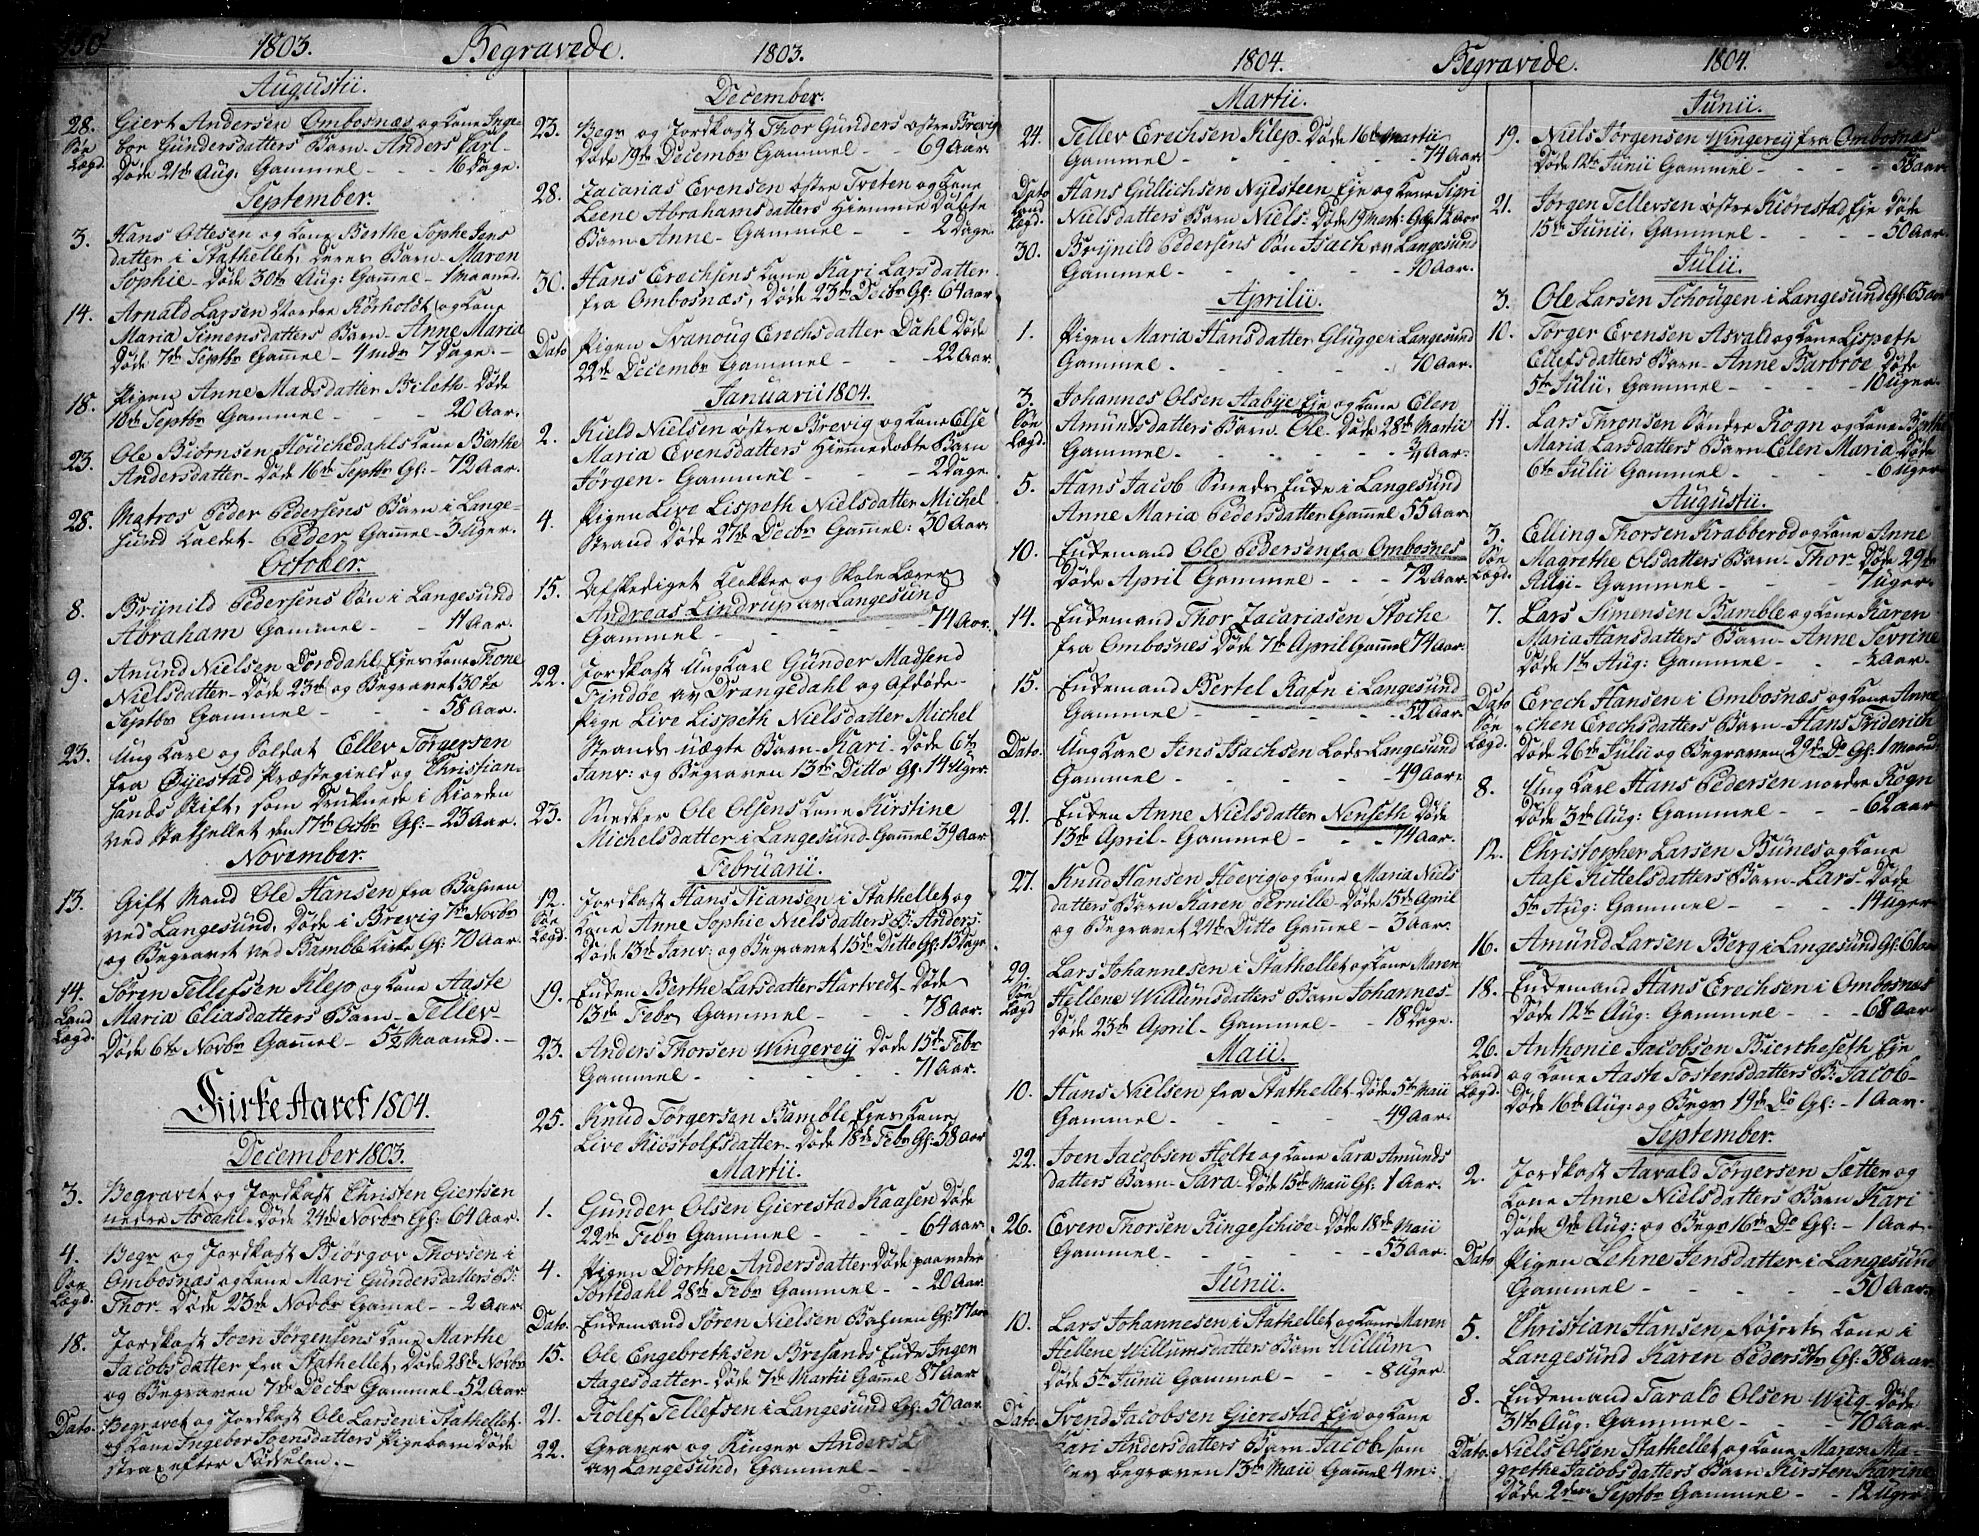 1803. Begravede. 1803.
Augustii.
28. Giert Andersen Ombosnæs og Kone Inge-
Søe bor Gundersdatters Barn Anders Carl-
Lægd. Døde 21de Aug: Gammel - - 16 Dage.
September.
3. Hans Ottesen og Kone Berthe Sophe Jens
datter i Stathellet, deres Barn Maren
Sophie Døde 30te Aug: Gamel - 1 Maaned.
14. Arnald Larsen Nordre Rörholdt og Kone
Maria Simensdatters Barn Anne Maria
Døde 7de Septbr Gamel - 4 mdr 7 Dage.
18. Pigen Anne Madsdatter Bileth Døde
10de Septbr Gammel - - 20 Aar.
23. Ole Biörnsen Houchedahls Kone Berthe
Andersdatter Døde 16de Septbr Gl: - 72 Aar.
28. Matros Peder Pedersens Barn i Lange-
sund kaldet Peder Gamel - 3 Uger.
October.
8. Brynild Pedersens Søn i Langesund
Abraham Gammel - - 11 Aar.
9. Amund Nielsen Dorddahl Ejes Kone Thone
Nielsdatter Døde 23de og Begravet 30te
Septbr Gammel - - 58 Aar.
23. Ung Karl og Soldat Ellev Törgersen
fra Øyestad Præstegield og Christian-
sands Stift, som Druknede i Fiorden
ved Stathellet den 17de Octbr Gl: - 23 Aar.
November.
13. Gift Mand Ole Hansen fra Bahnen
ved Langesund, Døde i Brevig 7de Novbr
og Begravet ved Bamble Kirke Gl: 70 Aar.
14. Sören Tellefsen Klep og Kone Aaste
Land Maria Eliasdatters Barn - Tellev
Lægd. Døde 6te Novbr Gamel - 5½ Maaned.
Kirke Aaret 1804.
December 1803.
3. Begravet og Jordkast Christen Giertsen
nedre Asdahl Døde 24de Novbr Gl: 64 Aar.
4. Begr og Jordkast Biörgov Thorsen i
Søe Ombosnæs og Kone Mari Gundersdatters B:
Lægd. Thor Døde 23de Novbr Gamel - 2 Aar.
18. Jordkast Joen Jörgensens Kone Marthe
Jacobsdatter fra Stathellet, Døde 28de Novbr
og Begraven 7de Decbr Gammel 52 Aar.
Dato. Begravet og Jordkast Ole Larsen i Stathellet
og Kone Ingebor Joensdatters Pigebarn Døde
strax efter Fødselen.
December.
23. Begr og Jordkast Thor Gunders østre Brevig
Døde 19de Decembr Gammel - - 69 Aar.
28. Zacarias Evensen østre Tveten og Kone
Leene Abrahamsdatters Hiemme Døbte
Barn Anne Gammel - - 2 Dage.
30. Hans Erechsens Kone Kari Larsdatter
fra Ombosnæs, Døde 23de Decbr Gl: 64 Aar
Dato Pigen Svanoug Erechsdatter Dahl Døde
22de Decembr Gammel - - 22 Aar.
Januarii 1804.
2. Kield Nielsen østre Brevig og Kone Else
Maria Evensdatters Hiemedøbte Barn
Jörgen Gammel - - 2 Dage.
4. Pigen Live Lispeth Nielsdatter Michel
Strand Døde 27de Decbr Gamel: 30 Aar.
15. Afskediget Klokker og Skole Lærer
Andreas Lindrup av Langesund
Gammel - - 74 Aar.
22. Jordkast Ung Karl Gunder Madsens
Findøe av Drangedahl og Afdøde
Pige Live Lispeth Nielsdatter Michel
Strands uægte Barn Kari Døde 6te
Janv: og Begraven 13de Ditto Gl: 14 Uger.
23. Snedker Ole Olsens Kone Kirstine
Michelsdatter i Langesund Gamel 39 Aar.
Februarii.
12. Jordkast Hans Stiansen i Stathellet og
Søe Kone Anne Sophie Nielsdatters B: Anders
Lægd. Døde 13de Janv: og Begravet 15de Ditto Gl: 13 Dage.
19. Enken Berthe Larsdatter Hartvedt Døde
13de Febr Gammel - - 78 Aar.
23. Anders Thorsen Wingereij Døde 15de Febr
Gammel - - 71 Aar.
25. Knud Törgersen Bamble Ejes Kone
Live Kiöstolfsdatter Døde 18de Febr Gl: 58 Aar
Martii.
1. Gunder Olsen Gierestad Kaasen Døde
22de Febr Gammel - - 64 Aar.
4. Pigen Dorthe Andersdatter Døde paa nedre
Tortedahl 28de Febr Gammel - - 20 Aar.
Dato. Enkemand Sören Nielsen Bahnen Gl: 77 Aar
15. Ole Engebrethsen Bresands Enke Ingen
Aagesdatter Døde 7de Martii Gamel 87 Aar
21. Rolef Tellefsen i Langesund Gl: 50 Aar.
22. Graver og Ringer Anders
av Langesund, Gammel -
1804. Begravede. 1804.
Martii.
24. Tellev Erechsen Klep Døde 16de Martii
Gammel - - 74 Aar.
Dato Hans Gullichsen Nylsteen Eje og Kone Sigri
Land Nielsdatters Barn Niels Døde 19 Mart: Gl: ½ Aar
Lægd.
30. Brynild Pedersens Søn Isach av Langesund
Gammel - - 10 Aar.
Aprilii.
1. Pigen Maria Hansdatter Glugge i Langesund
Gammel - - 70 Aar.
3. Johannes Olsen Aabye Eje og Kone Elen
Søe Amundsdatters Barn Ole Døde 28de Martii
Lægd. Gammel - - ¾ Aar.
5. Hans Jacob Smeds Enke i Langesund
Anne Maria Pedersdatter Gamel 55 Aar
10. Enkemand Ole Pedersen fra Ombosnes
Døde April Gammel - - 72 Aar.
14. Enkemand Thor Zacariasen Stoche
fra Ombosnes Døde 7de April Gamel 74 Aar.
15. Enkemand Bertel Rafn i Langesund
Gammel - - 52 Aar.
Dato. Ung Karl Jens Isachsen Lods Langesund
Gammel - - 49 Aar.
21. Enken Anne Nielsdatter Nenseth Døde
13de April Gammel - - 74 Aar.
27. Knud Hansen Hoevig og Kone Maria Niels
datters Barn Karen Pernille Døde 15de April
og Begravet 24de Ditto Gamel - 3 Aar.
29. Lars Johannesen i Stathellet og Kone Maren
Søe Hellene Willumsdatters Barn Johannes
Lægd Døde 23de April Gammel - - 18 Dage.
Maii.
10. Hans Nielsen fra Stathellet Døde 5te Maii
Gammel - - 49 Aar.
22. Joen Jacobsen Holte og Kone Sara Amunds
datters Barn Sara Døde 15de Maii Gl: 1 Aar.
26. Even Thorsen Ringeschiöe Døde 18de Maii
Gammel - - 53 Aar.
Junii.
10. Lars Johannesen i Stathellet og Kone Maren
Hellene Willumsdatters Barn Willum
Døde 5te Junii Gammel - - 8 Uger
Dato. Svend Jacobsen Gierestad Eje og Kone
Kari Andersdatters Barn Jacob som
blev begraven 13de Maii Gamel 4 m:
Junii.
19. Niels Jörgensen Wingereij fra Ombosnæs
Døde 12te Junii Gammel - - 58 Aar.
21. Jörgen Tellevsen østre Kiörestad Eje Døde
15de Junii, Gammel - - 50 Aar.
Julii.
3. Ole Larsen Schougen i Langesund Gl: 65 Aar
10. Törger Evensen Asvald og Kone Lispeth
Ellefsdatters Barn Anne Barbroe Døde
5te Julii, Gammel - - 10 Uger.
11. Lars Thronsen Søndre Rogn og Kone Berthe
Maria Larsdatters Barn Elen Maria Døde
6te Julii Gammel - - 6 Uger
Augustii.
3. Elling Thorsen Krabberød og Kone Anne
Søe Magrethe Olsdatters Barn Thor Døde 29de
Lægd. Julii Gammel - - 7 Uger.
7. Lars Simensen Bamble og Kone Karen
Maria Hansdatters Barn Anne Sevrine
Døde 1te Aug: Gammel - - Aar.
Dato Erech Hansen i Ombosnæs og Kone Anne
Søe chen Erechsdatters Barn Hans Friderich
Lægd. Døde 26de Julii og Begraven 29de Do Gl: 1 Maaned.
8. Ung Karl Hans Pedersen nordre Rogn
Døde 3de Aug: Gammel - - 62 Aar
12. Christopher Larsen Bunes og Kone
Aase Kittelsdatters Barn Lars Døde
5te Aug: Gammel - - 14 Uger
16. Amund Larsen Berg i Langesund Gl: 61 Aar
18. Enkemand Hans Erechsen i Ombosnæs
Døde 12te Aug: Gammel - - 68 Aar
26. Anthonie Jacobsen Biertheseth Eje
Land og Kone Aaste Tostensdatters B: Jacob
Lægd. Døde 16de Aug: og Begr 19de Do Gl: - 1 Aar.
September.
2. Jordkast Aavald Törgersen Sætter og
Kone Anne Nielsdatters Barn Kari
Døde 9de Aug: og Begr 16de Do Gl: - 1 Aar.
Dato Pigen Lehne Jensdatter i Langesund
Gammel - - 50 Aar.
5. Christian Hansen Röyrets Kone i
Langesund Karen Pedersdtr Gl: 38 Aar
8. Enkemand Tarald Olsen Wiig Døde
31te Aug: Gammel - - 70 Aar.
Dato. Niels Olsen Stathellet og Kone Maren Ma-
grethe Jacobsdatters Barn Kirsten Karine
Døde 2den Septbr Gammel - - 12 Uger